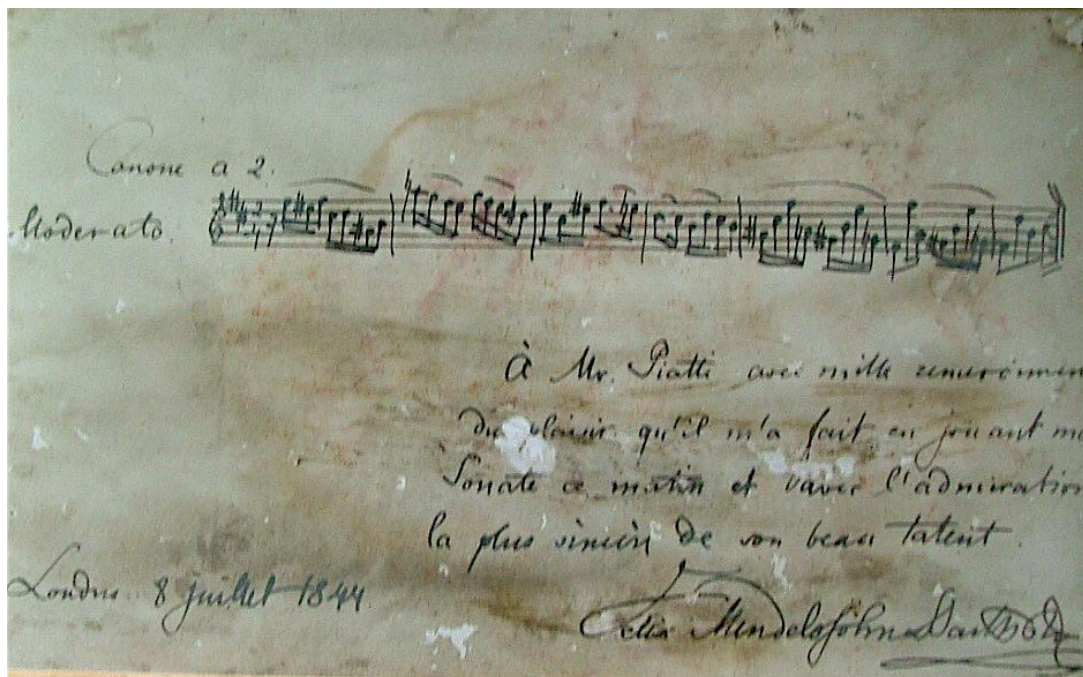 Canone a 2.
Moderato.
À Mr. Piatti avec mille
du plaisir qu'il m'a fait en jouant
Sonate ce matin et avec l'admiration
la plus sincère de son beau talent.
Londres 8 juillet 1844
Felix Mendelssohn Bartholdy